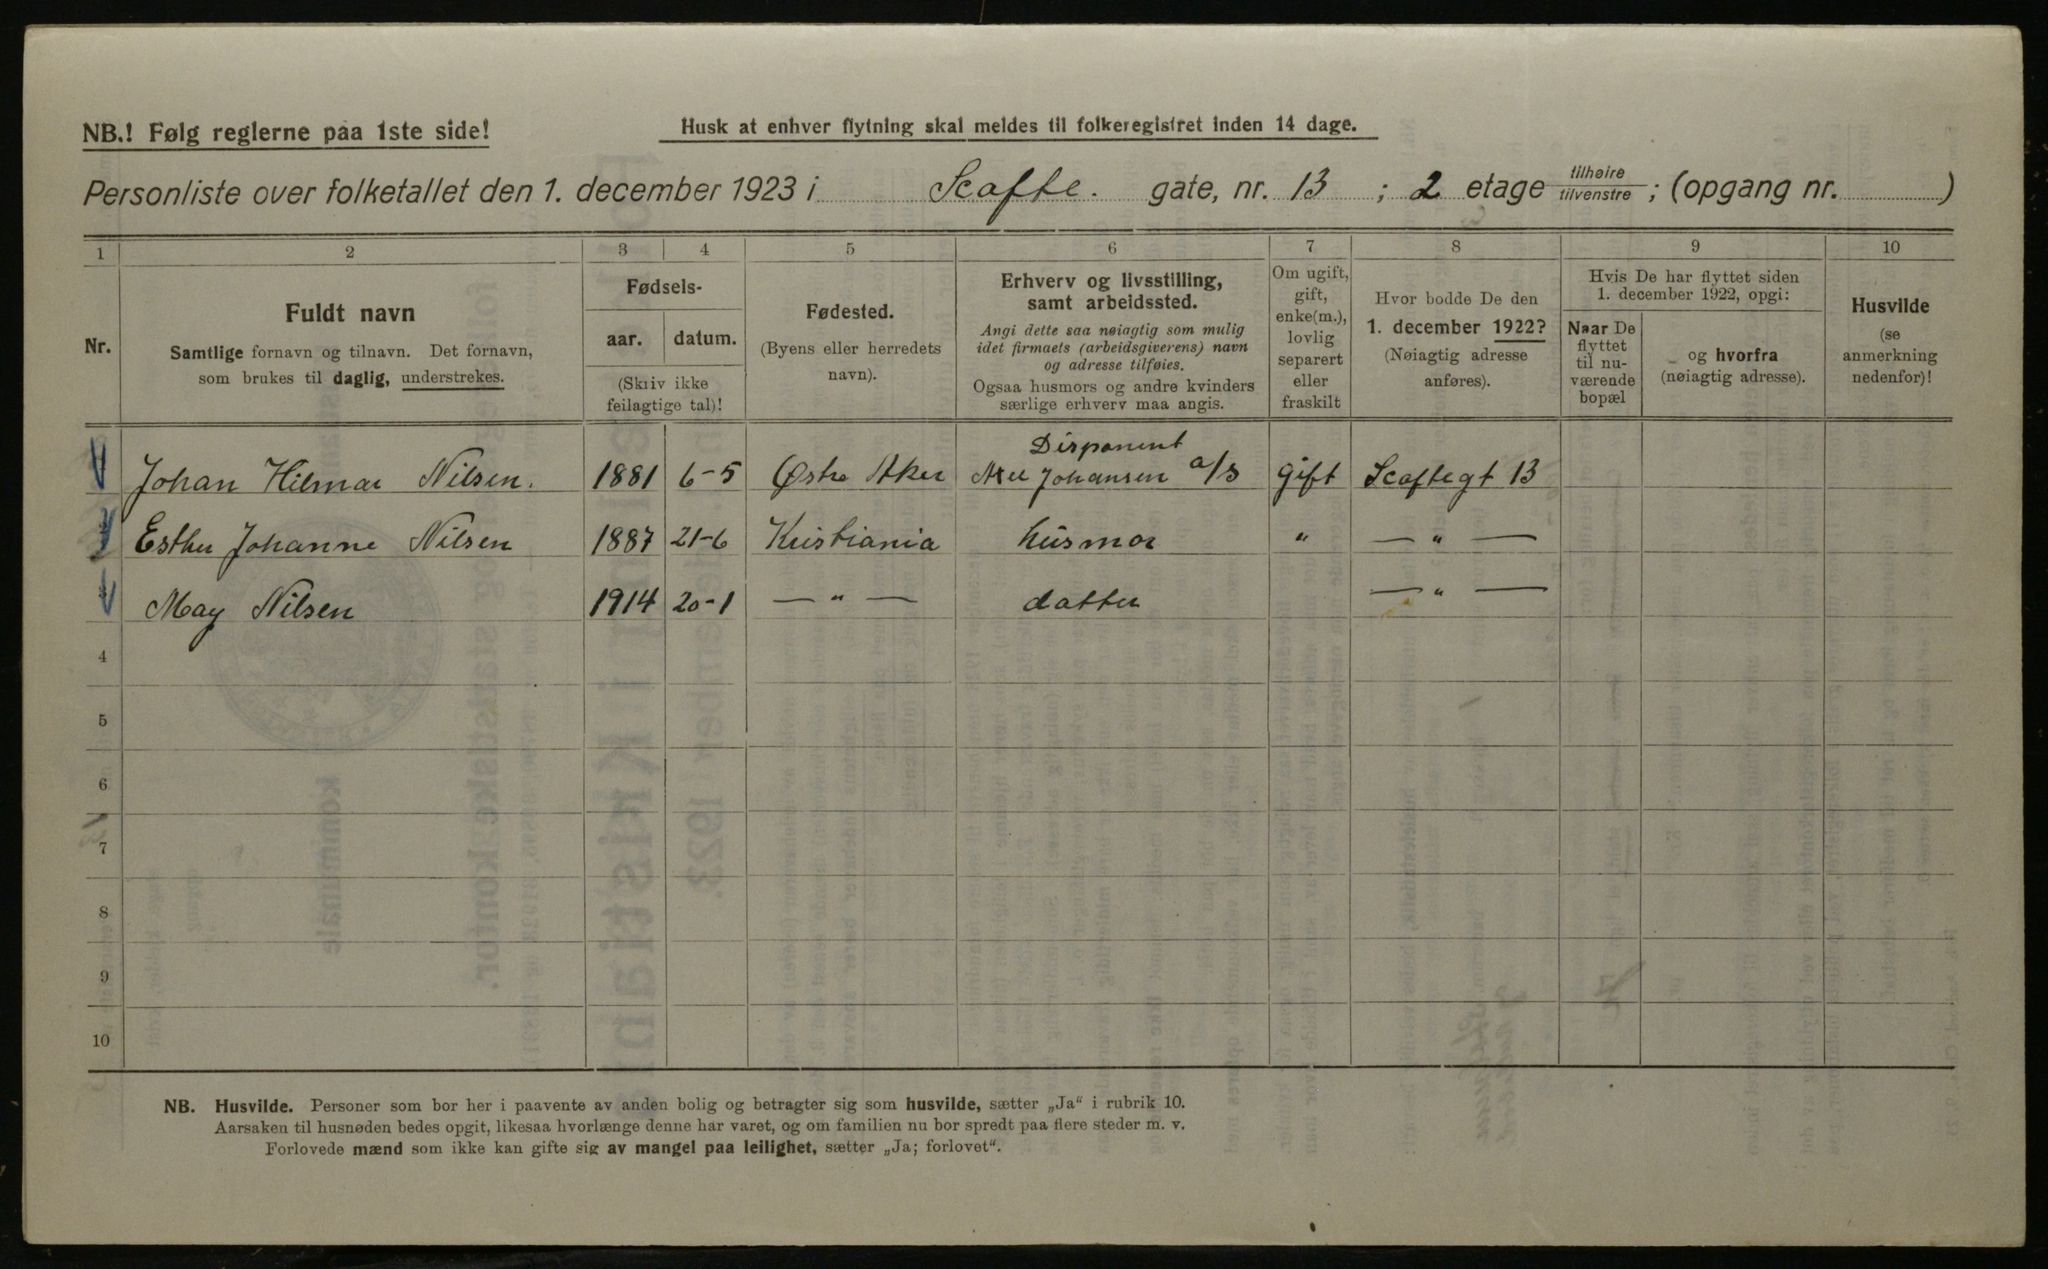 NB.! Følg reglerne paa 1ste side!
Husk at enhver flytning skal meldes til folkeregistret inden 14 dage.
Personliste over folketallet den 1. december 1923 i Scafte. gate, nr. 13 ; 2 etage tilhøire/tilvenstre ; (opgang nr. )
1 2 3 4 5 6 7 8 9 10
Nr.
Fuldt navn
Samtlige fornavn og tilnavn. Det fornavn,
som brukes til daglig, understrekes.
Fødsels-
aar. datum.
(Skriv ikke
feilagtige tal)!
Fødested.
(Byens eller herredets
navn).
Erhverv og livsstilling,
samt arbeidssted.
Angi dette saa nøiagtig som mulig
idet firmaets (arbeidsgiverens) navn
og adresse tilføies.
Ogsaa husmors og andre kvinders
særlige erhverv maa angis.
Om ugift,
gift,
enke(m.),
lovlig
separert
eller
fraskilt
Hvor bodde De den
1. december 1922?
(Nøiagtig adresse
anføres).
Hvis De har flyttet siden
1. december 1922, opgi:
Naar De
flyttet
til nu-
værende
bopæl
og hvorfra
(nøiagtig adresse).
Husvilde
(se
anmerkning
nedenfor)!
Disponent
Johan Hilmar Nilsen. 1881 6-5 Østre Aker Axel Johansen a/s gift Scaftegt 13
Esther Johanne Nilsen 1887 21-6 Kristiania husmor " — " —
May Nilsen 1914 20-1 — " — datter — " —
4
5
6
7
8
9
10
NB. Husvilde. Personer som bor her i paavente av anden bolig og betragter sig som husvilde, sætter „Ja" i rubrik 10.
Aarsaken til husnøden bedes opgit, likesaa hvorlænge denne har varet, og om familien nu bor spredt paa flere steder m. v.
Forlovede mænd som ikke kan gifte sig av mangel paa leilighet, sætter „Ja; forlovet".